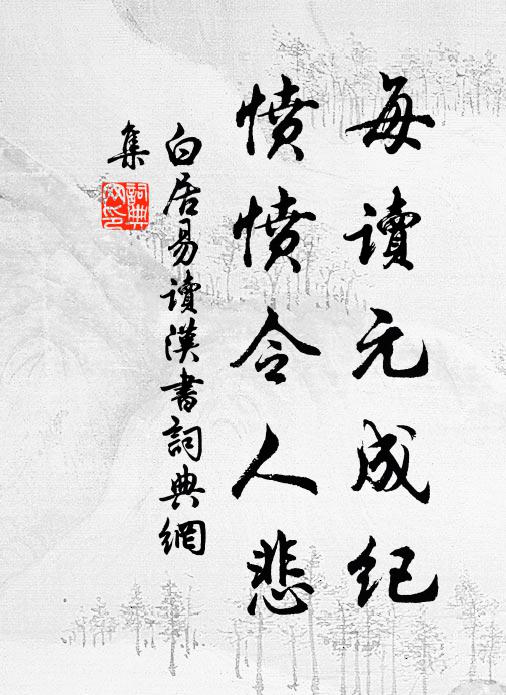 每讀元成紀
憤憤令人悲
白居易讀漢書詞典網
集
詞典網印